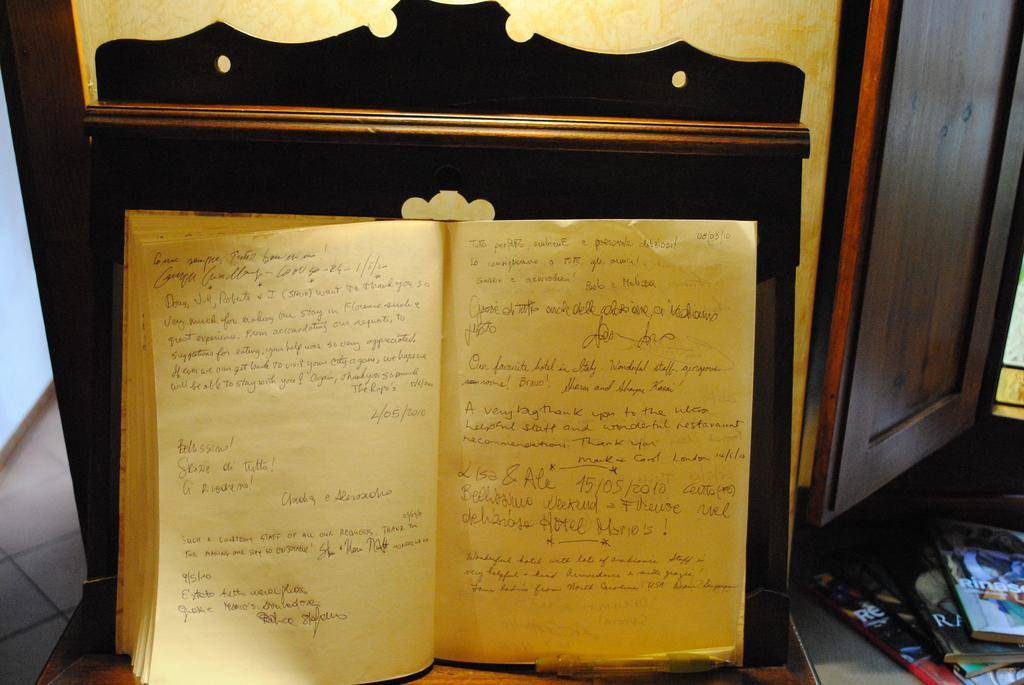 Come sempre, tutto
Doug, Roberta & I want to thank you so
very much for making our stay in Florence such a
great experience. From accomodating our requests, to
suggestions for eating, your help was so very appreciated.
If ever we can get back to visit your city again, we hope we
will be able to stay with you! Again, thank you so much
The
2/05/2010
Bellissimo!
Grazie di tutto!
Ci rivedremo!
Claudia e Alessandro
SUCH A COURTEOUS STAFF OF ALL OUR REQUESTS, THANK YOU
FOR MAKING OUR STAY SO ENJOYABLE!
9/5/10
E' stato tutto meraviglioso
Grazie Mario's
08/03/10
Tutto perfetto, ambiente e personale deliziosi!
Lo consigliamo a tutti gli amici!
Grazie e arrivederci
Grazie di tutto anche della colazione, ci vediamo
presto
Our favourite hotel in Italy. Wonderful staff, gorgeous
rooms! Bravo! Sharon and
A very big thank you to the ultra
helpful staff and wonderful restaurant
recommendations. Thank you
Mark & Carol London 14/5/10
Lisa & Ale 15/05/2010 Cento (FE)
Bellissimo weekend a Firenze nel
delizioso Hotel Mario's!
Wonderful hotel with lots of ambience. Staff is
very helpful & kind. Arrivederci & mille grazie!
Four ladies from North Carolina USA